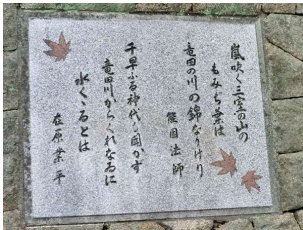 嵐吹く三室の山の
もみぢ葉は
竜田の川の錦なりけり
能因法師
千早ふる神代も聞かず
竜田川からくれなゐに
水くゝるとは
在原業平